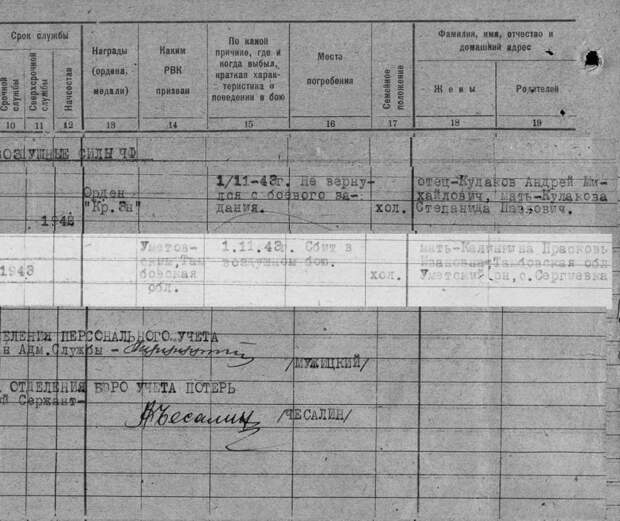 Срок службы
Срочной службы
Сверхсрочной службы
Начсостав
Награды (ордена, медали)
Каким РВК призван
По какой причине, где и когда выбыл, краткая характеристика о поведении в бою
Место погребения
Семейное положение
Фамилия, имя, отчество и домашний адрес
Жены
Родителей
10 11 12 13 14 15 16 17 18 19
ВОЗДУШНЫЕ СИЛЫ ЧФ
1942
Орден
"Кр.Зн"
1/11-43г. Не верну-
лся с боевого за-
дания.
хол.
отец-Кулаков Андрей Ми-
хайлович, мать-Кулакова
Степанида
1943
Уметов-
ский, Там
бовская
обл.
1.11.43г. Сбит в
воздушном бою.
хол.
мать-Калинкина Прасковь
Ивановна Тамбовская обл
Уметский он, с. Сергиевка
ЕЛЕНИЯ ПЕРСОНАЛЬНОГО УЧЕТА
н Адм.Службы -
/МУЖИЦКИЙ/
ОТДЕЛЕНИЯ БЮРО УЧЕТА ПОТЕРЬ
й Сержант-
Чесалин
/ЧЕСАЛИН/